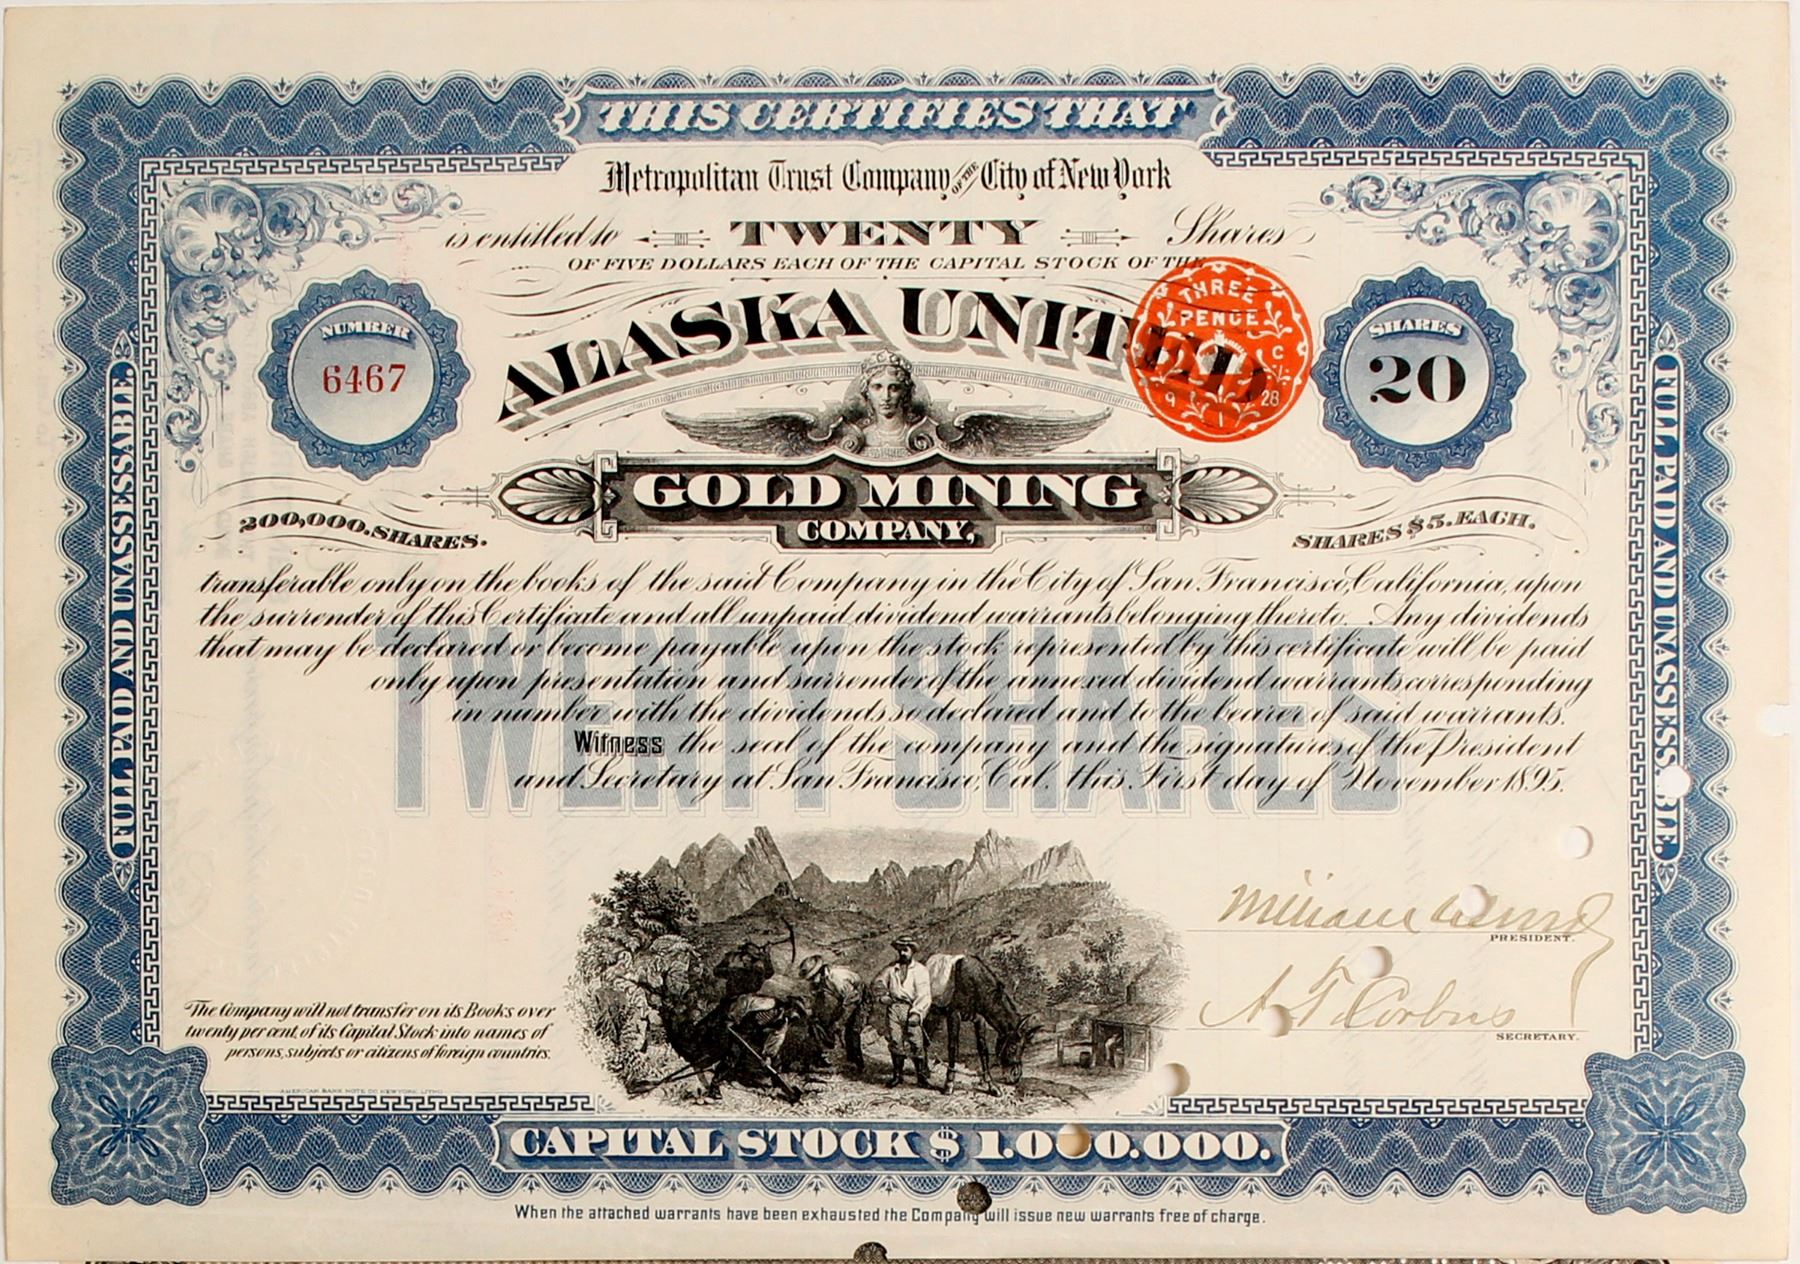 THIS CERTIFIES THAT
Metropolitan Trust Company OF THE City of New York
is entitled to TWENTY Shares
OF FIVE DOLLARS EACH OF THE CAPITAL STOCK OF THE
ALASKA UNITED
THREE
PENCE
C
9 28
NUMBER
6467
SHARES
20
GOLD MINING
COMPANY,
200,000. SHARES.
SHARES $5. EACH.
transferable only on the books of the said Company in the City of San Francisco, California, upon
the surrender of this Certificate and all unpaid dividend warrants belonging thereto. Any dividends
that may be declared or become payable upon the stock represented by this certificate will be paid
only upon presentation and surrender of the annexed dividend warrants corresponding
in number with the dividends so declared and to the bearer of said warrants.
Witness the seal of the company and the signatures of the President
and Secretary at San Francisco, Cal. this First day of November 1895.
TWENTY SHARES
FULL PAID AND UNASSESSABLE.
FULL PAID AND UNASSESS.BLE.
William
PRESIDENT.
A. T. Corbus
SECRETARY.
The Company will not transfer on its Books over
twenty per cent. of its Capital Stock into names of
persons, subjects or citizens of foreign countries.
AMERICAN BANK NOTE CO. NEW YORK, LITHO.
CAPITAL STOCK $1.000.000.
When the attached warrants have been exhausted the Company will issue new warrants free of charge.